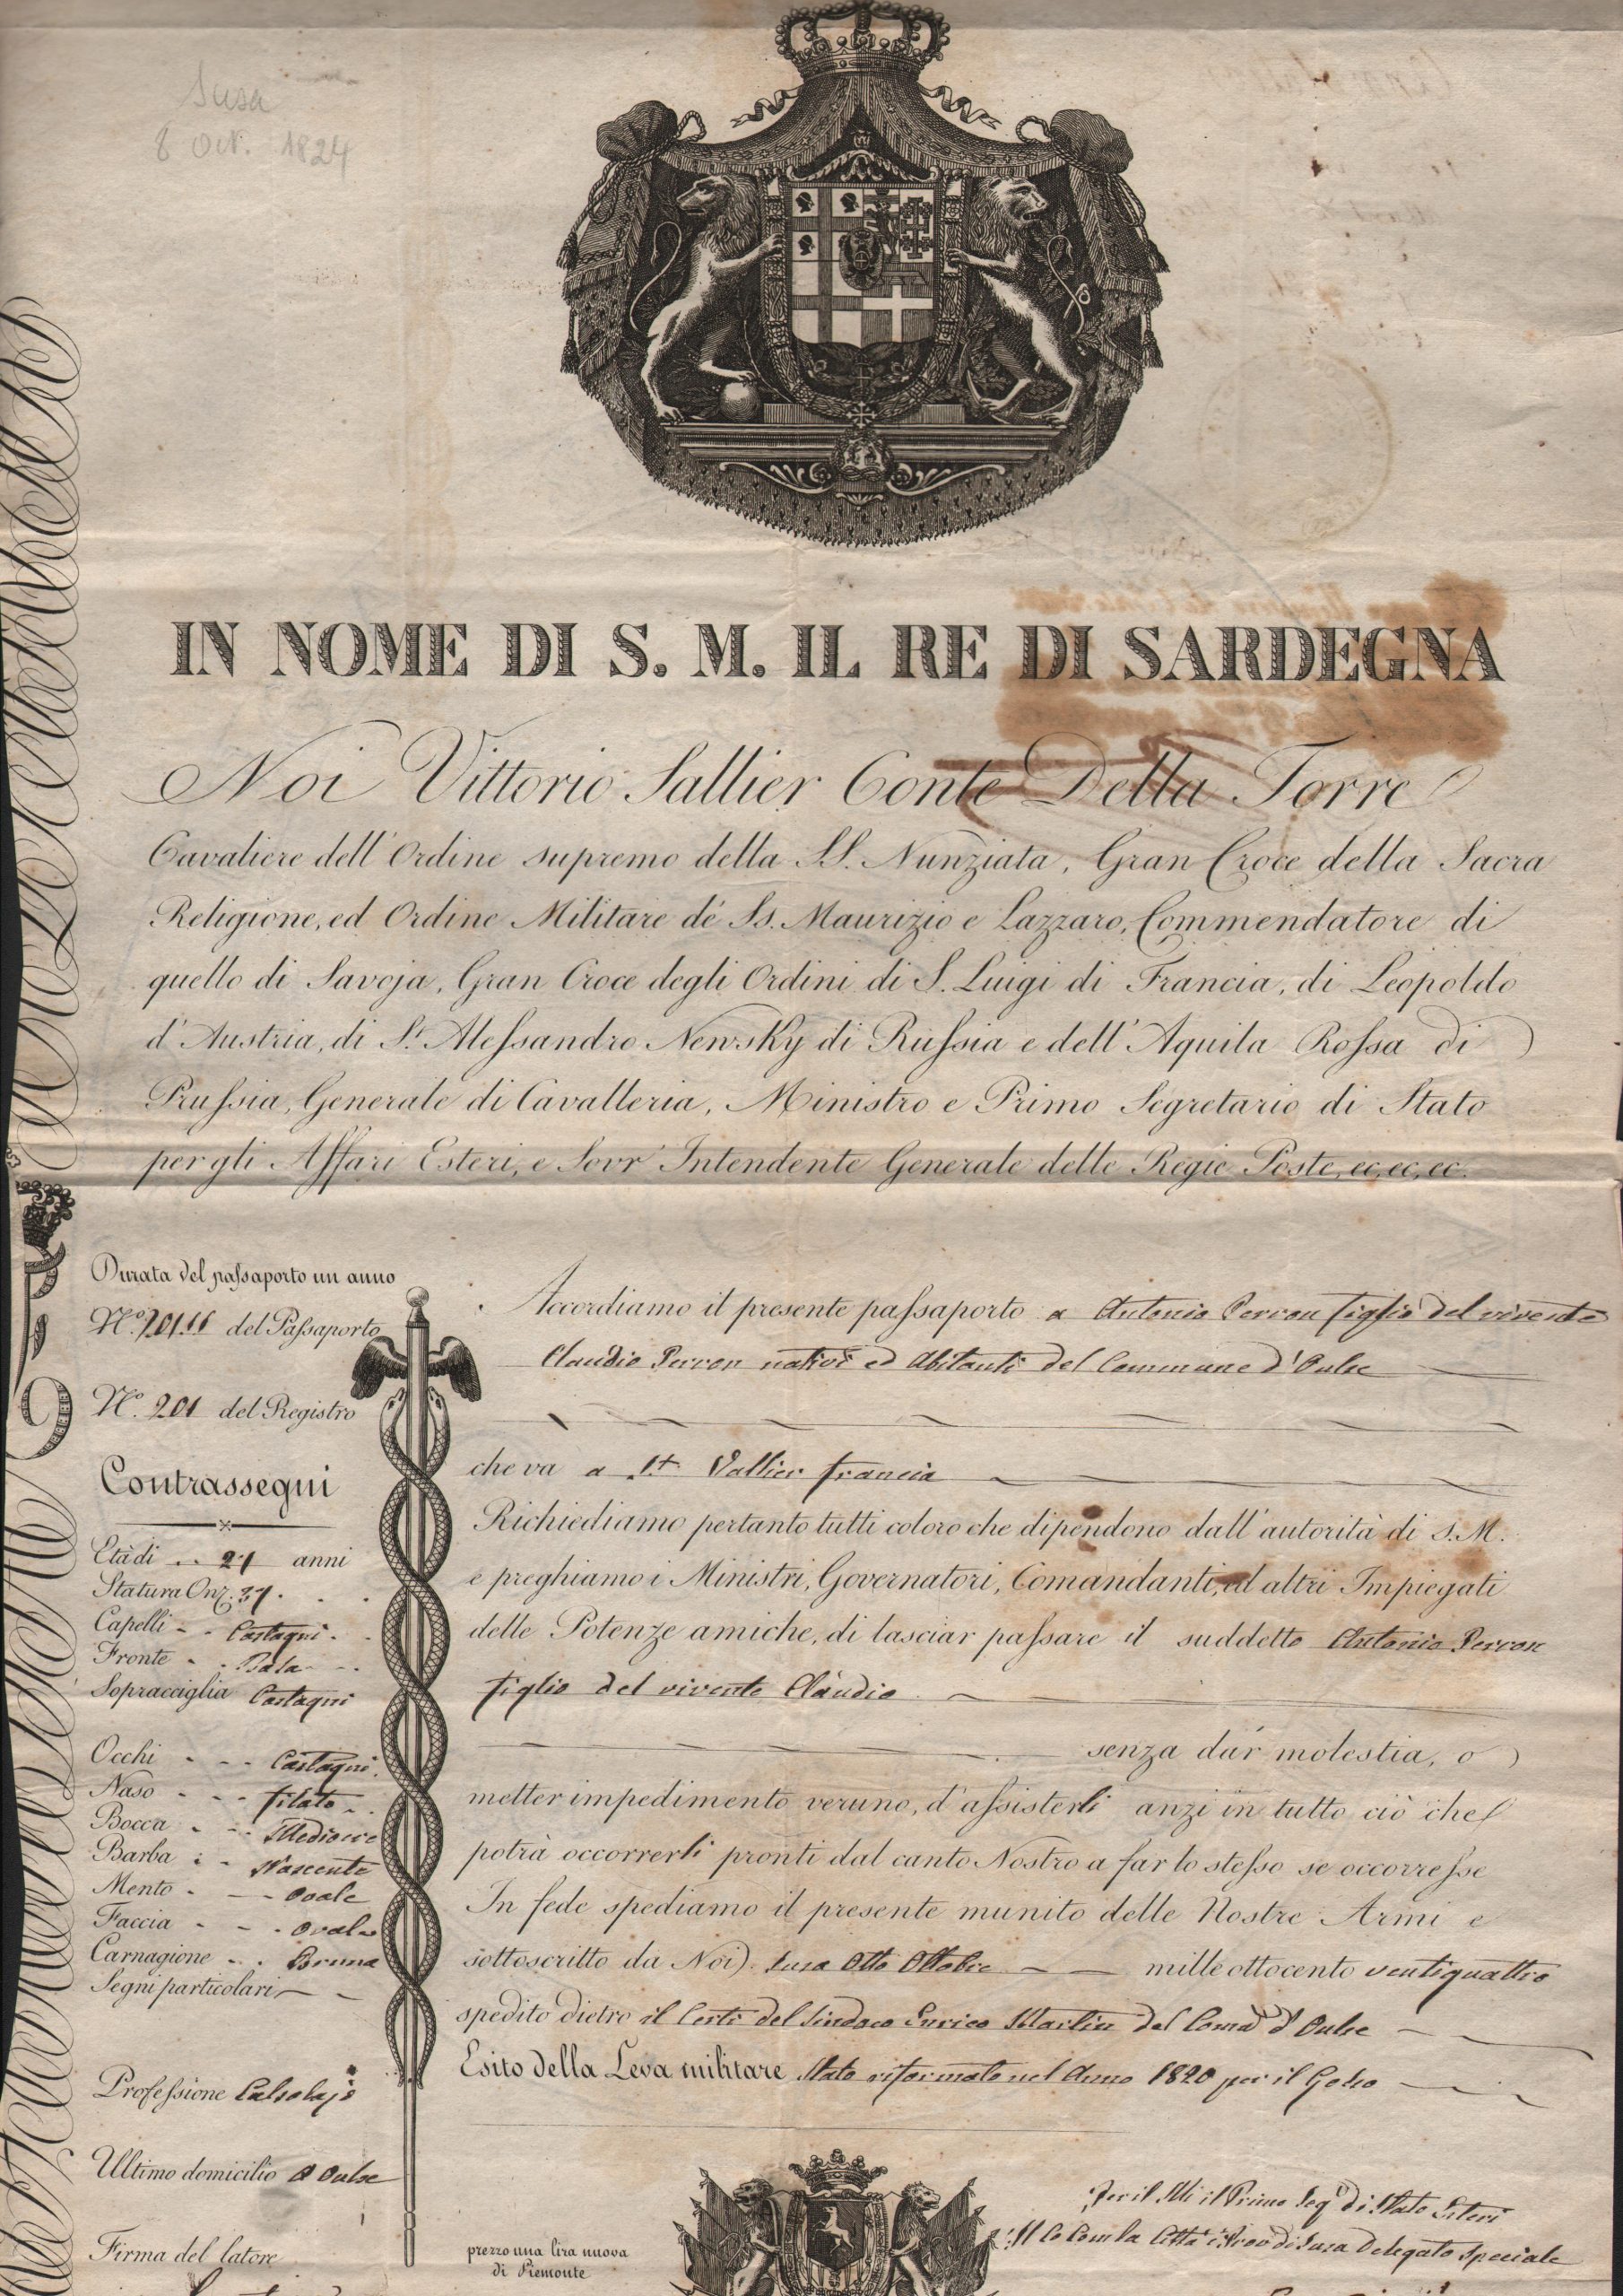 Susa
8 Oct. 1824
IN NOME DI S. M. IL RE DI SARDEGNA
Noi Vittorio Sallier Conte Della Torre
Cavaliere dell' Ordine supremo della SS. Nunziata, Gran Croce della Sacra
Religione, ed Ordine Militare de' Ss. Maurizio e Lazzaro, Commendatore di
quello di Savoja, Gran Croce degli Ordini di S. Luigi di Francia, di Leopoldo
d'Austria, di St. Alessandro Newsky di Russia e dell' Aquila Rossa di
Prussia, Generale di Cavalleria, Ministro e Primo Segretario di Stato
per gli Affari Esteri, e Sovr' Intendente Generale delle Regie Poste, ec, ec, ec.
Durata del passaporto un anno
No. del Passaporto
No. 201 del Registro
Contrassegni
Età di 27 anni
Statura Onz. 37
Capelli Castagni
Fronte
Sopracciglia Castagni
Occhi Castagni
Naso filato
Bocca Mediocre
Barba Nascente
Mento Ovale
Faccia Ovale
Carnagione Bruna
Segni particolari
Professione Calsolajo
Ultimo domicilio a Oulse
Firma del latore
Accordiamo il presente passaporto a Antonio Perron figlio del vivente
Claudio Perron nativi ed Abitanti del Commune d'Oulse
che va a St. Vallier francia
Richiediamo pertanto tutti coloro che dipendono dall' autorità di S.M.
e preghiamo i Ministri, Governatori, Comandanti, ed altri Impiegati
delle Potenze amiche, di lasciar passare il suddetto Antonio Perron
figlio del vivente Claudio
senza dar molestia, o
metter impedimento veruno, d'assisterli anzi in tutto ciò che
potrà occorrerli pronti dal canto Nostro a far lo stesso se occorresse
In fede spediamo il presente munito delle Nostre Armi e
sottoscritto da Noi Susa Otto Ottobre mille ottocento ventiquattro
spedito dietro il Certi del Sindaco Enrico Martin del Comè d'Oulse
Esito della Leva militare Stato riformato nel Anno 1820 per il Goso
prezzo una lira nuova
di Piemonte
Per il Mi il Primo Segr di Stato Esteri
Il Co Com la Città e Prov di Susa Delegato Speciale